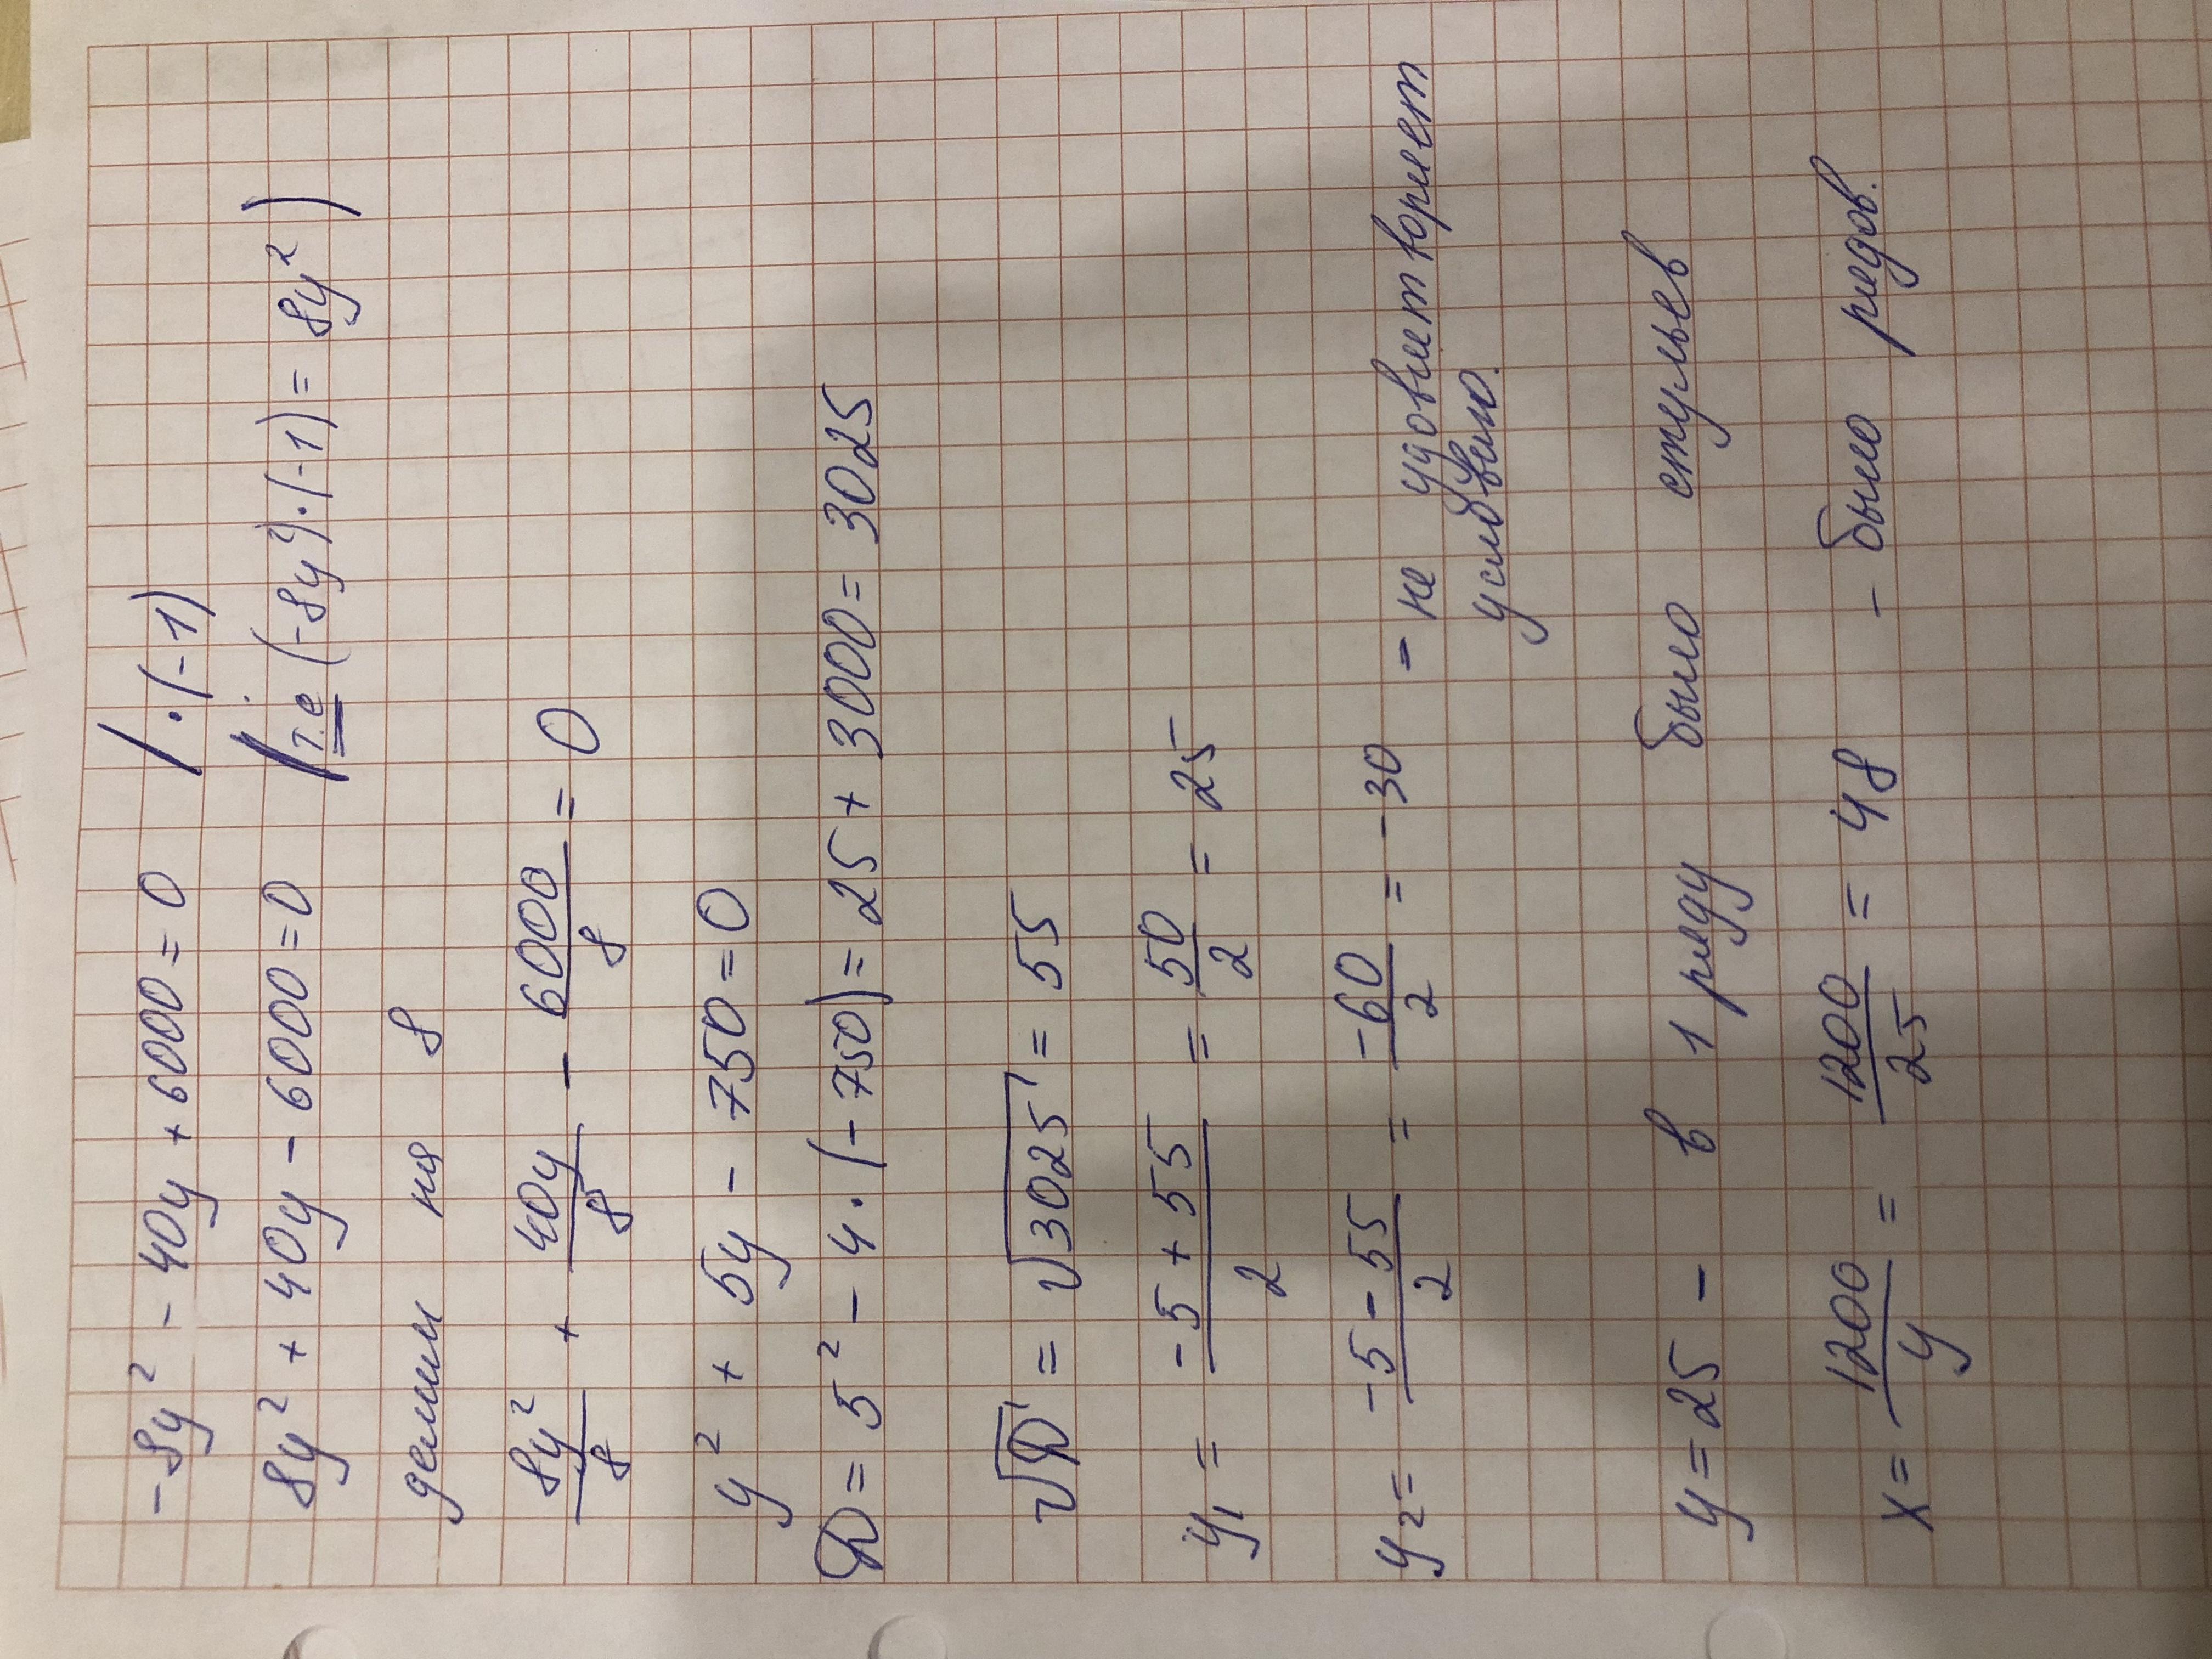 -8y² - 40y + 6000 = 0 / · (-1)
8y² + 40y - 6000 = 0 / т.е (-8y²) · (-1) = 8y² )
делим на 8
8y²/8 + 40y/8 - 6000/8 = 0
y² + 5y - 750 = 0
D = 5² - 4 · (-750) = 25 + 3000 = 3025
√D = √3025 = 55
y₁ = (-5 + 55)/2 = 50/2 = 25
y₂ = (-5 - 55)/2 = -60/2 = -30 - не удовлетворяет
условию.
y = 25 - в 1 ряду было стульев
x = 1200/y = 1200/25 = 48 - было рядов.